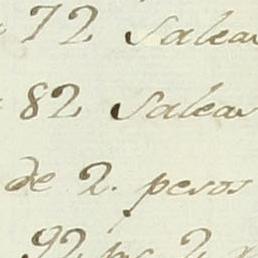 72 Salea
82 Salea
de 2. pesos
92 ps. 2